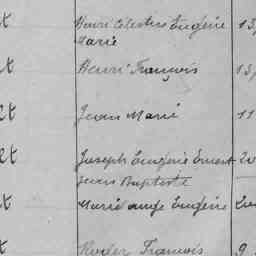 et Henri Célestin Eugénie 13,
Marie
et Henri François 13,
et Jean Marie 11
et Joseph Eugénie Ernest
Jean Baptiste
et Marie ange Eugénie
et François 9